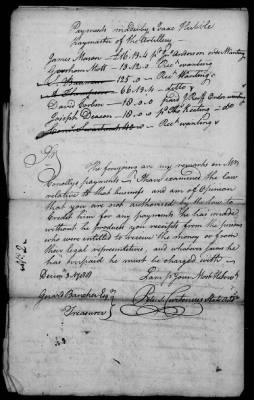 Payments made by Isaac
paymaster of the Artillery
James Moran — £16.13.4 pd Anderson order Wanting
Gershom Mott — 13.12.0 Rect wanting
125.0 — Rect Wanting
Thompson — 66.13.4 — ditto
David Corbin — 18.0.0 paid order wanting
Joseph Deacon — 18.0.0 pd Keeting — do
40.0 — Rect wanting
Sir
The foregoing are my remarks on Mr
Connollys payments — I have examined the Law
relative to that business and am of Opinion
that you are not authorised by the law to
Credit him for any payments he has made
without he produces you receipts from the persons
who were entitled to receive the money or from
their legal representatives, and whatever sums he
has overpaid he must be charged with —
I am Sir Your Most Hble Sert
Peter Curtenius State Audr
Gerard Bancker Esqr
Treasurer